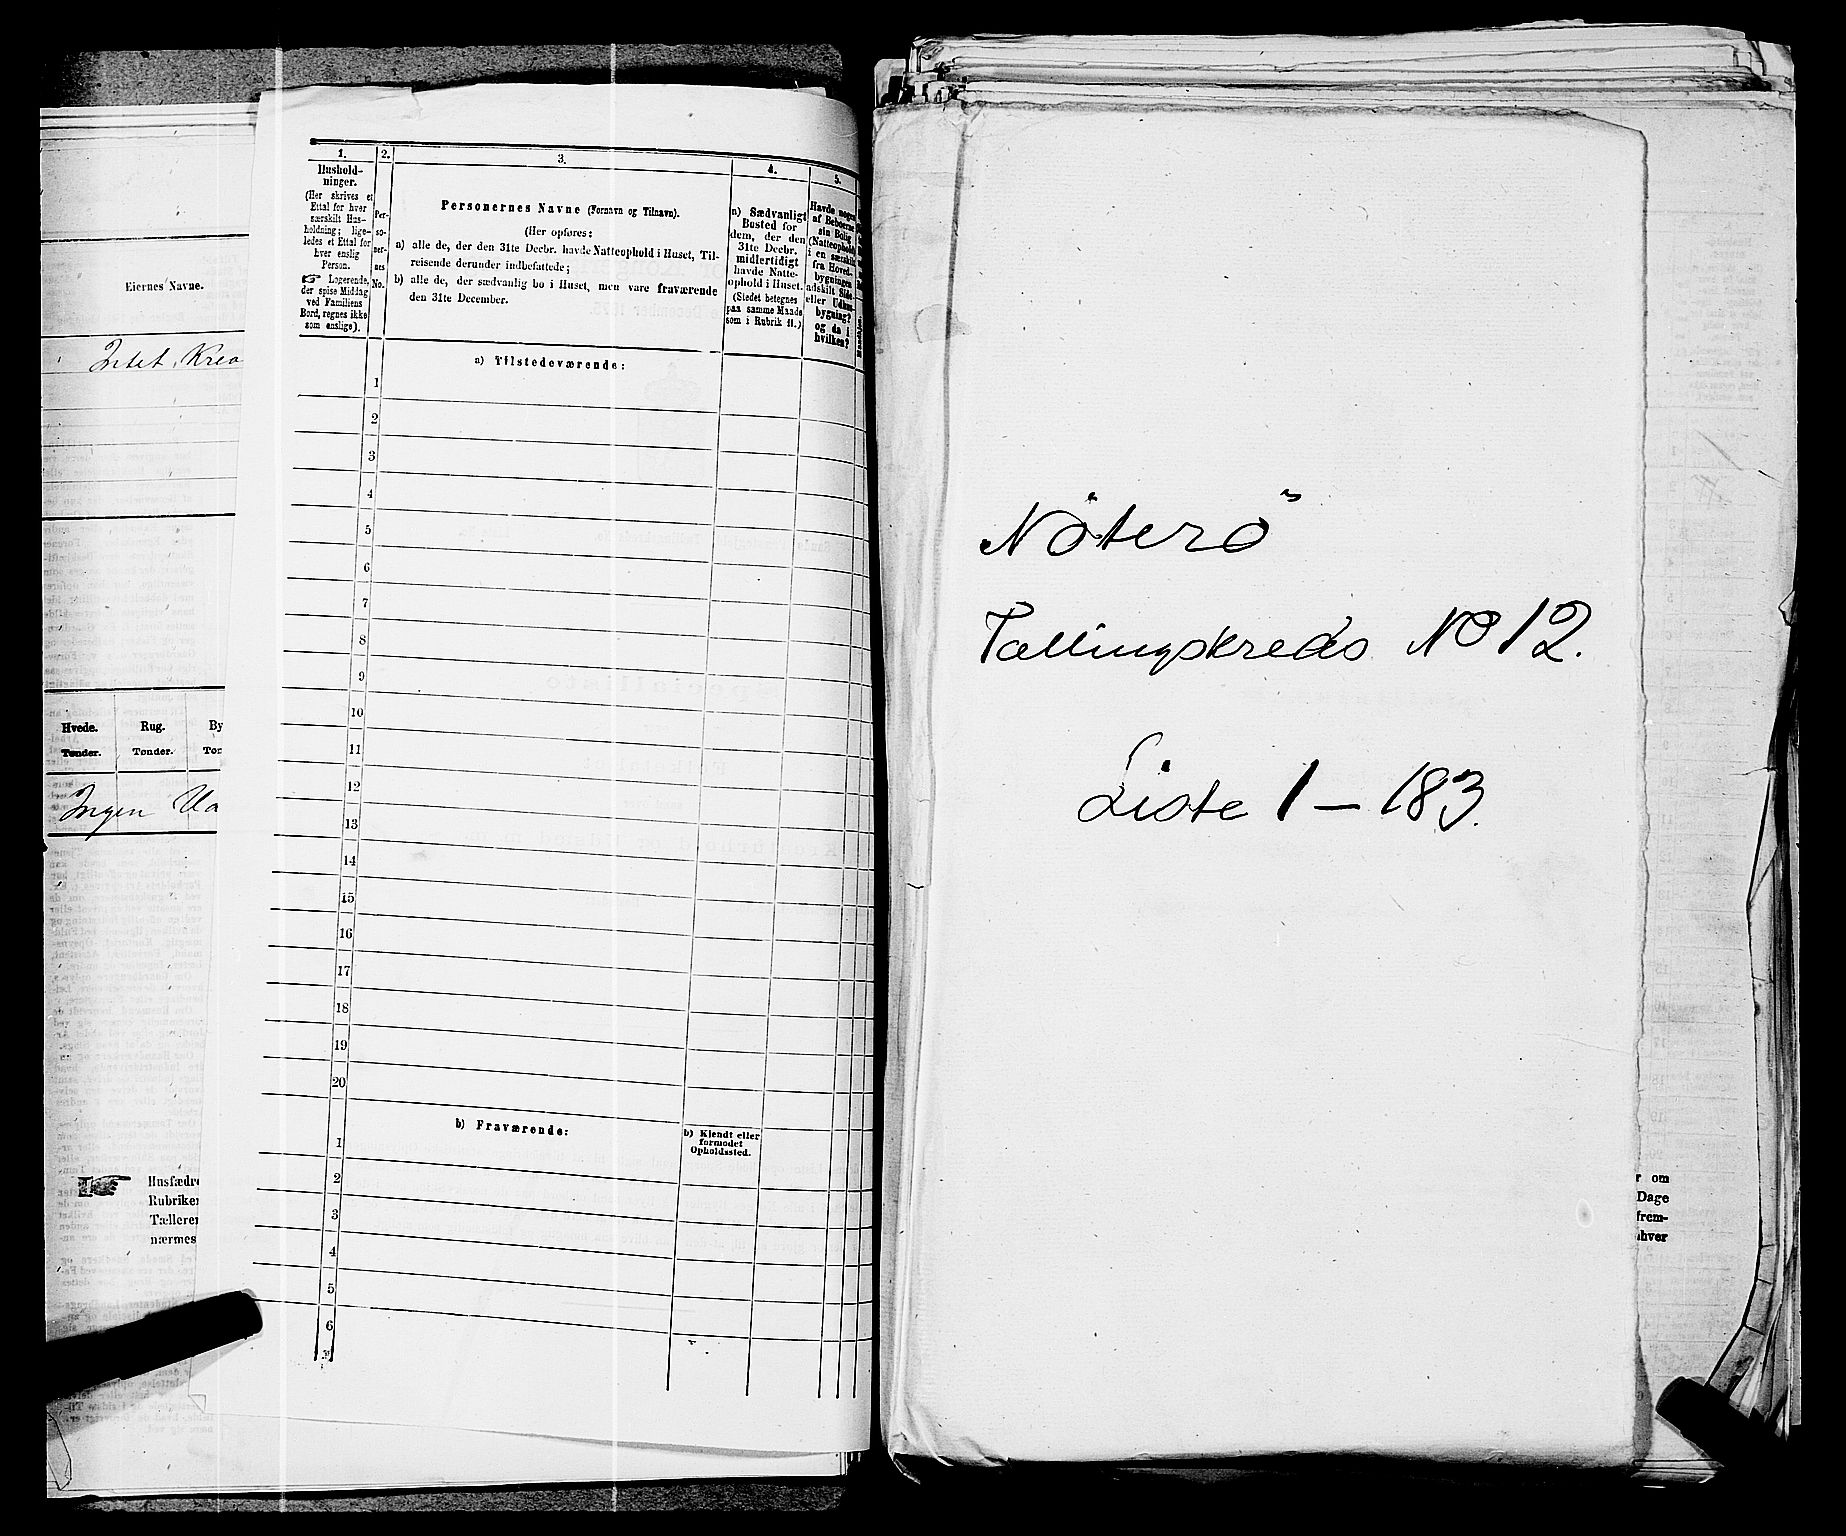 Eiernes Navne.
Intet Krea
Hvede. Rug. By
Tønder. Tønder. Tør
Ingen Ud
Husfædre
Rubriker
Tællerer
nærmes
1. 2. 3. 4. 5.
Hushold-
ninger.
(Her skrives et
Ettal for hver
særskilt Hus-
holdning; lige-
ledes et Ettal for
hver enslig
Person.
Logerende,
der spise Middag
ved Familiens
Bord, regnes ikke
som enslige).
Per-
so-
ner-
nes
No.
Personernes Navne (Fornavn og Tilnavn).
(Her opføres:
a) alle de, der den 31te Decbr. havde Natteophold i Huset, Til-
reisende derunder indbefattede;
b) alle de, der sædvanlig bo i Huset, men vare fraværende
den 31te December.
a) Sædvanligt
Bosted for
dem, der den
31te Decbr.
midlertidigt
havde Natte-
ophold i Huset.
(Stedet betegnes
paa samme Maade
som i Rubrik 11.)
Havde nogen
af Beboerne
sin Bolig
(Natteophold)
i en særskilt
fra Hoved-
bygningen
adskilt Side-
eller Udhus-
bygning?
og da i
hvilken?
Mandkjøn.
a) Tilstedeværende:
1
2
3
4
5
6
7
8
9
10
11
12
13
14
15
16
17
18
19
20
b) Fraværende:
b) Kjendt eller
formodet
Opholdssted.
1
2
3
4
5
6
Nöterö
Tællingskreds No 12.
Liste 1 – 183.
r om
Dage
frem-
hver